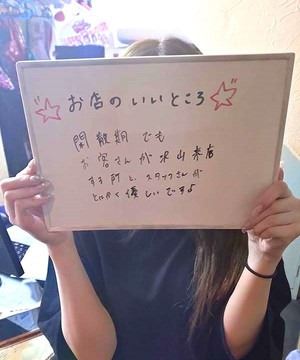 お店のいいところ
閑散期でも
お客さんが沢山来店
する所と、スタッフさんが
とにかく優しいです♪